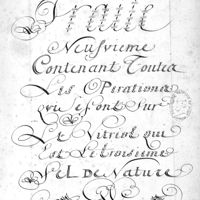 Traité
Neufvieme
Contenant Toutes
Les Operations
qui se font Sur
Le Vitriol qui
Est Le troisieme
Sel De Nature